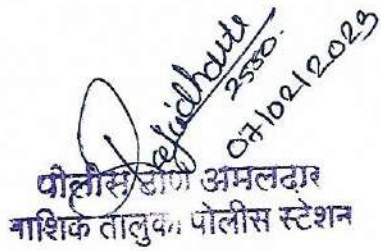 2550.
07/02/2023
पोलीस ठाणे अंमलदार
नाशिक तालुका पोलीस स्टेशन